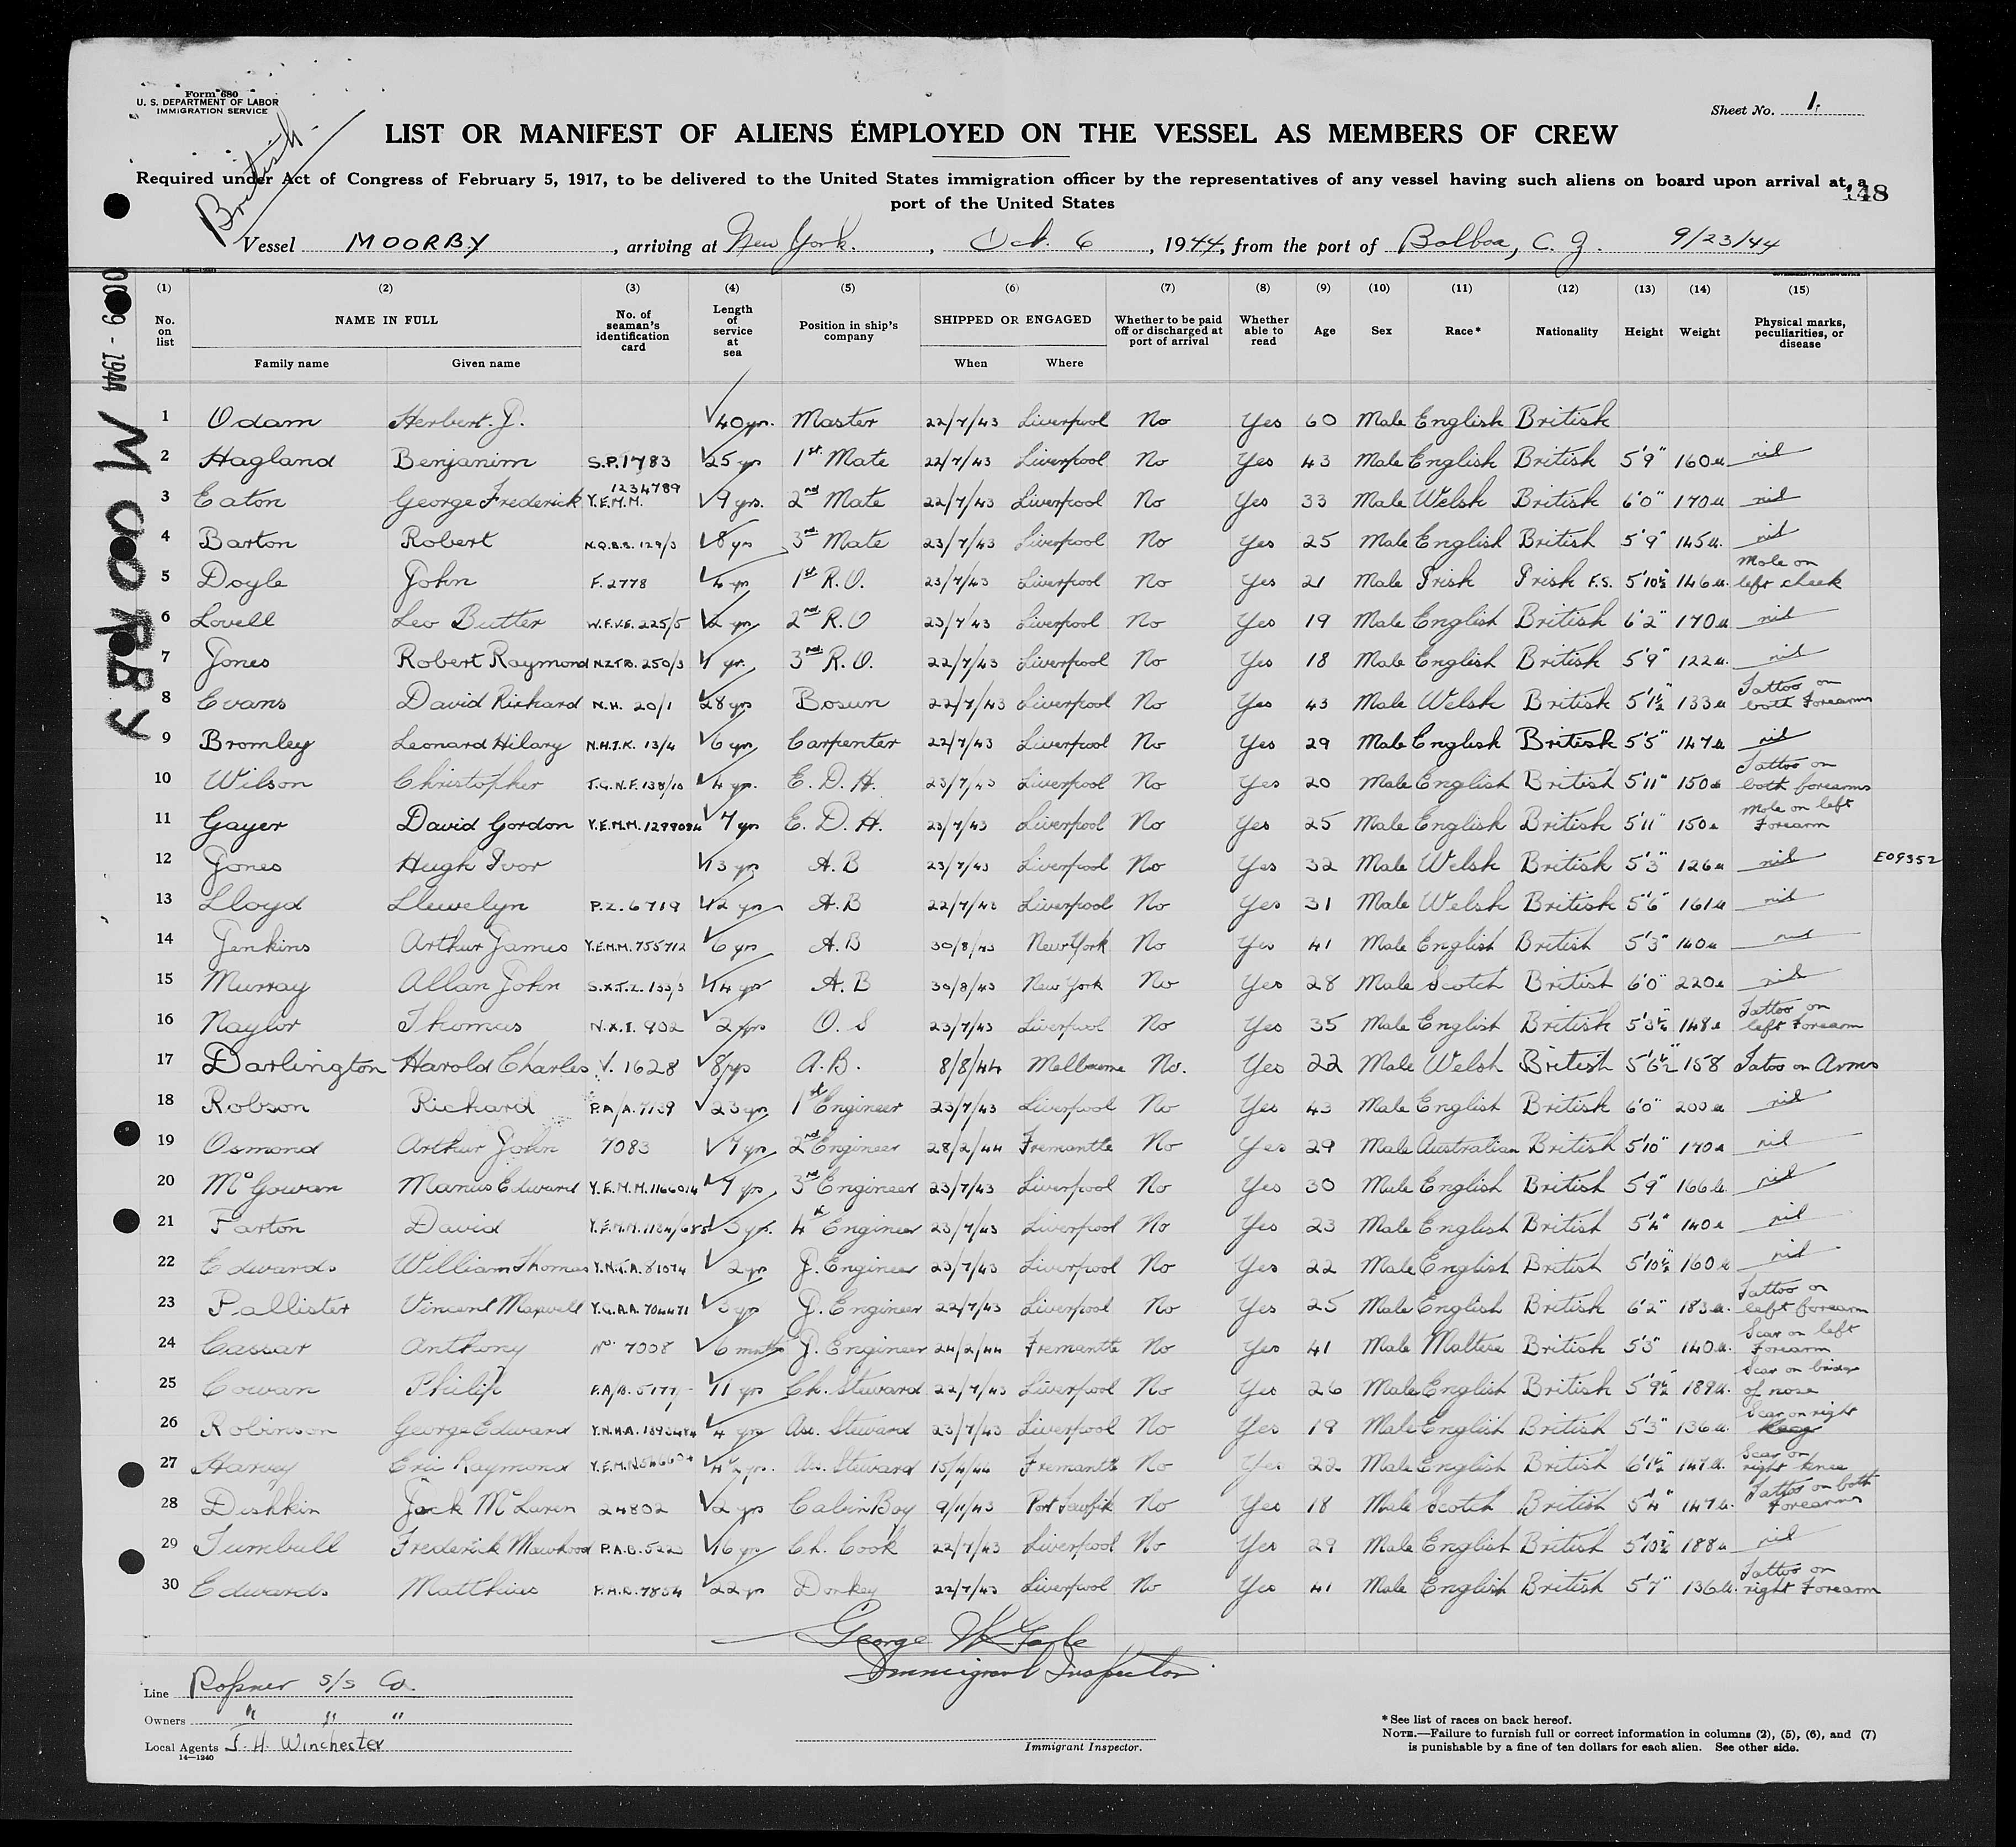 Form 680
U. S. DEPARTMENT OF LABOR
IMMIGRATION SERVICE
British
Sheet No. 1
LIST OR MANIFEST OF ALIENS EMPLOYED ON THE VESSEL AS MEMBERS OF CREW
Required under Act of Congress of February 5, 1917, to be delivered to the United States immigration officer by the representatives of any vessel having such aliens on board upon arrival at a
port of the United States
148
Vessel MOORBY, arriving at New York, Oct. 6, 1944, from the port of Balboa, C. Z. 9/23/44
(1) (2) (3) (4) (5) (6) (7) (8) (9) (10) (11) (12) (13) (14) (15)
No. on list NAME IN FULL Family name Given name No. of seaman's identification card Length of service at sea Position in ship's company SHIPPED OR ENGAGED When Where Whether to be paid off or discharged at port of arrival Whether able to read Age Sex Race* Nationality Height Weight Physical marks, peculiarities, or disease
1 Odam Herbert. J. 40 yrs. Master 22/7/43 Liverpool No Yes 60 Male English British
2 Hagland Benjanim S.P.1783 25 yrs 1st Mate 22/7/43 Liverpool No Yes 43 Male English British 5'9" 160 nil
3 Eaton George Frederick Y.E.M.M. 1234789 9 yrs. 2nd Mate 22/7/43 Liverpool No Yes 33 Male Welsh British 6'0" 170 nil
4 Barton Robert 129/3 8 yrs 3rd Mate 23/7/43 Liverpool No Yes 25 Male English British 5'9" 145 nil
5 Doyle John F. 2778 4 yrs 1st R.O. 23/7/43 Liverpool No Yes 21 Male Irish Irish F.S. 5'10½" 146 Mole on left cheek
6 Lovell Leo Butter W.F.V.E. 225/5 2 yrs 2nd R.O 23/7/43 Liverpool No Yes 19 Male English British 6'2" 170 nil
7 Jones Robert Raymond N.Z.T.B. 250/3 1 yr. 3rd R.O. 22/7/43 Liverpool No Yes 18 Male English British 5'9" 122 nil
8 Evans David Richard N.H. 20/1 28 yrs Bosun 22/7/43 Liverpool No Yes 43 Male Welsh British 5'1½" 133 Tattoo on both Forearms
9 Bromley Leonard Hilary N.H.T.K. 13/4 6 yrs Carpenter 22/7/43 Liverpool No Yes 29 Male English British 5'5" 147 nil
10 Wilson Christopher 138/10 4 yrs. E. D. H. 23/7/43 Liverpool No Yes 20 Male English British 5'11" 150 Tattoo on both forearms
11 Gayer David Gordon Y.E.M.M. 1299094 7 yrs E. D. H. 23/7/43 Liverpool No Yes 25 Male English British 5'11" 150 Mole on left Forearm
12 Jones Hugh Ivor 13 yrs A.B 23/7/43 Liverpool No Yes 32 Male Welsh British 5'3" 126 nil E09352
13 Lloyd Llewelyn P.Z. 6719 12 yrs A.B 22/7/43 Liverpool No Yes 31 Male Welsh British 5'6" 161 nil
14 Jenkins Arthur James Y.E.M.M. 755712 6 yrs A.B 30/8/43 New York No Yes 41 Male English British 5'3" 140 nil
15 Murray Allan John 14 yrs A.B 30/8/43 New York No Yes 28 Male Scotch British 6'0" 220 nil
16 Naylor Thomas N.X.T. 902 2 yrs O. S 23/7/43 Liverpool No Yes 35 Male English British 5'3½" 148 Tattoo on left Forearm
17 Darlington Harold Charles V. 1628 8 yrs A.B. 8/8/44 Melbourne No. Yes 22 Male Welsh British 5'6½" 158 Tatoo on Arms
18 Robson Richard P.A/A. 7139 23 yrs 1st Engineer 23/7/43 Liverpool No Yes 43 Male English British 6'0" 200 nil
19 Osmond Arthur John 7083 7 yrs 2nd Engineer 28/2/44 Fremantle No Yes 29 Male Australian British 5'10" 170 nil
20 McGowan Manus Edward Y.E.M.M. 1166014 7 yrs 3rd Engineer 23/7/43 Liverpool No Yes 30 Male English British 5'9" 166 nil
21 Farton David 3 yrs. 4th Engineer 23/7/43 Liverpool No Yes 23 Male English British 5'4" 140 nil
22 Edwards William Thomas 81074 2 yrs J. Engineer 23/7/43 Liverpool No Yes 22 Male English British 5'10½" 160 nil
23 Pallister Vincent Maxwell 704471 3 yrs J. Engineer 22/7/43 Liverpool No Yes 25 Male English British 6'2" 183 Tattoo on left forearm
24 Cassar Anthony No. 7008 6 mnths J. Engineer 24/2/44 Fremantle No Yes 41 Male Maltese British 5'3" 140 Scar on left Forearm
25 Cowan Philip 5177 11 yrs Ch. Steward 22/7/43 Liverpool No Yes 26 Male English British 5'9½" 189 Scar on bridge of nose
26 Robinson George Edward 4 yrs Ass. Steward 23/7/43 Liverpool No Yes 19 Male English British 5'3" 136 Scar on right
27 Harvey Eric Raymond Ass. Steward 15/4/44 Fremantle No Yes 22 Male English British 6'1½" 147 Scar on right knee
28 Dishkin Jack McLaren 24802 2 yrs Cabin Boy 9/11/43 Port Tewfik No Yes 18 Male Scotch British 5'4" 147 Tattoo on both Forearms
29 Turnbull Frederick Mawhood P.A.B. 16 yrs Ch. Cook 22/7/43 Liverpool No Yes 29 Male English British 5'10½" 188 nil
30 Edwards Matthias 22 yrs Donkey 22/7/43 Liverpool No Yes 41 Male English British 5'7" 136 Tattoo on right Forearm
George W.
Immigrant Inspector
Line Ropner s/s Co.
Owners " " "
Local Agents J. H. Winchester
14—1240
Immigrant Inspector.
* See list of races on back hereof.
NOTE.—Failure to furnish full or correct information in columns (2), (5), (6), and (7)
is punishable by a fine of ten dollars for each alien. See other side.
1944 MOORBY